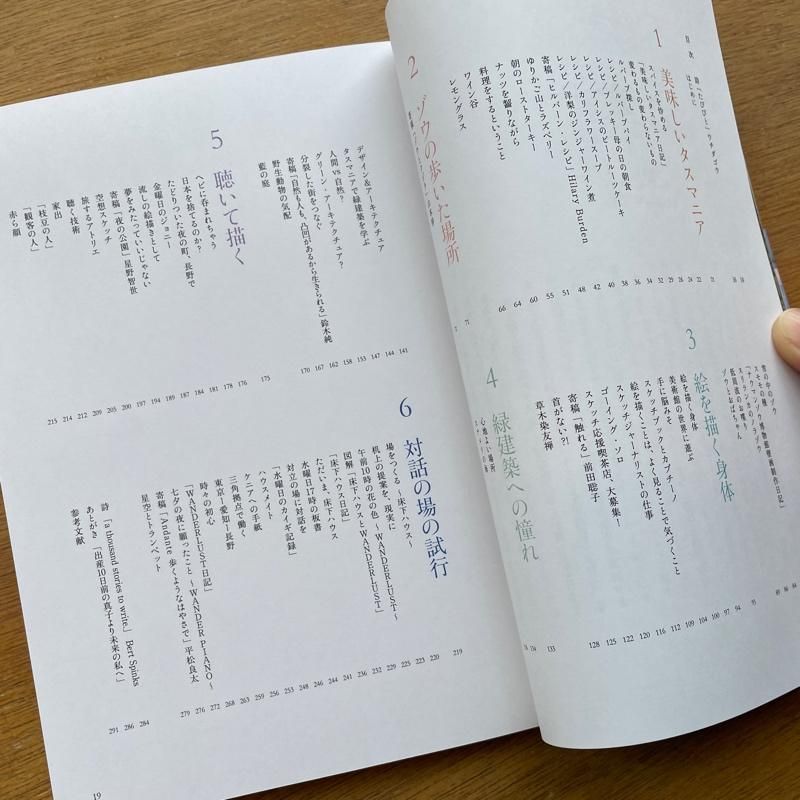 目次
詩「たびびと」ウチダゴウ
はじめに
1 美味しいタスマニア
スパイスを炒める
「美味しいタスマニア日記」
変わるもの変わらないもの
ルバーブ探し
レシピ/ルバーブパイ
レシピ/ブレッキー母の日の朝食
レシピ/アイシスのビートルーツケーキ
レシピ/カリフラワースープ
レシピ/洋梨のジンジャーワイン煮
寄稿「ヒルバーン・レシピ」Hilary Burden
ゆりかご山とラズベリー
朝のローストターキー
ナッツを齧りながら
料理をするということ
ワイン谷
レモングラス
18
18
21
22
22
24
26
28
32
36
38
40
42
48
51
55
60
64
66
2 ゾウの歩いた場所
71
雪の中のゾウ
スモモの種
ゾウとおばちゃん
3 絵を描く身体
絵を描く身体
美術館の世界に遊ぶ
手に脳みそ
スケッチブックとカプチーノ
絵を描くことは、よく見ることで気づくこと
スケッチジャーナリストの仕事
ゴーイング・ソロ
スケッチ応援喫茶店、大募集!
寄稿「触れる」前田聡子
首がない?!
草木染友禅
84
86
89
93
94
97
100
104
109
112
116
120
122
125
128
4 緑建築への憧れ
心地よい場所
133
134
デザイン&アーキテクチュア
タスマニアで緑建築を学ぶ
人間vs自然?
グリーン・アーキテクチュア?
分裂した街をつなぐ
寄稿「自然も人も、凸凹があるから生きられる」鈴木純
野生動物の気配
藍の庭
141
144
147
153
158
162
167
170
5 聴いて描く
ヘビに呑まれちゃう
日本を捨てるのか?
たどりついた夜の町、長野で
金曜日のジョニー
流しの絵描きとして
夢をみたっていいじゃない
寄稿「夜の公園」星野智世
空想スケッチ
旅するアトリエ
聴く技術
家出
「枝豆の人」
「観客の人」
赤ら顔
175
176
178
181
184
187
189
194
197
200
205
209
212
214
215
6 対話の場の試行
場をつくる ~床下ハウス~
机上の提案を、現実に
午前10時の花の色 ~WANDERLUST~
図解「床下ハウスとWANDERLUST」
「床下ハウス日記」
ただいま、床下ハウス
水曜日17時の板書
対立の場に対話を
「水曜日のカイギ記録」
ハウスメイト
ケニアへの手紙
三角拠点で働く
東京ー愛知ー長野
時々の初心
「WANDERLUST日記」
七夕の夜に願ったこと ~WANDER PIANO~
寄稿「Andante 歩くようなはやさで」平松良太
星空とトランペット
219
220
223
225
229
232
236
241
244
246
248
253
256
259
263
268
272
276
279
詩「a thousand stories to write」Bert Spinks
あとがき「出産10日前の真子より未来の私へ」
参考文献
284
286
291
19